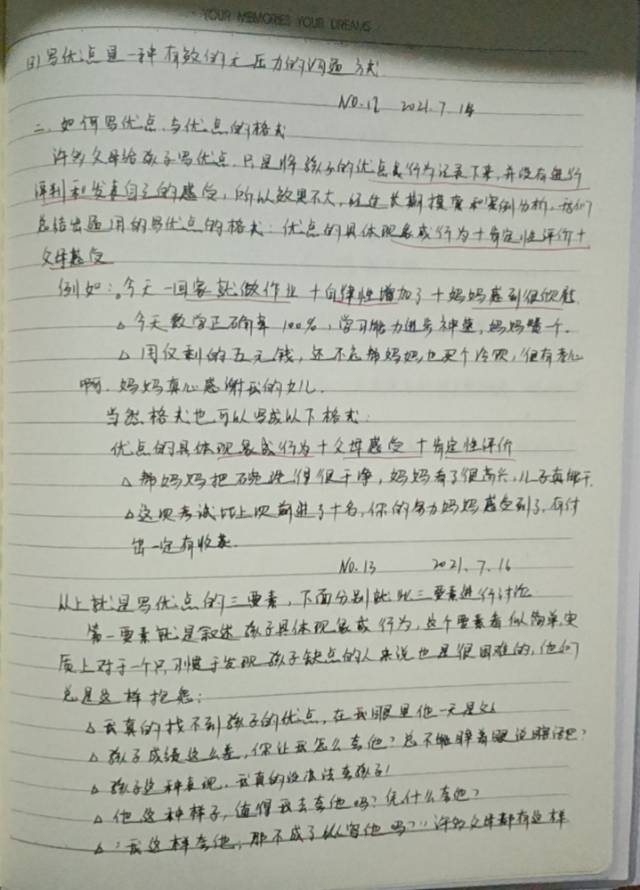 YOUR MEMORIES YOUR DREAMS
(3)写优点是一种有效的无压力的沟通方式
NO.12 2021.7.14
二、如何写优点,写优点的格式
许多父母给孩子写优点,只是将孩子的优点或行为记录下来,并没有进行
评判和发表自己的感受,所以效果不大,经过长期摸索和案例分析,我们
总结出适用的写优点的格式:优点的具体现象或行为+肯定性评价+
父母感受
例如:。今天一回家就做作业+自律性增加了+妈妈感到很欣慰
△今天数学正确率100%,学习能力进步神速,妈妈赞一个。
△用仅剩的五元钱,还不忘帮妈妈也买个冷饮,很有孝心
啊,妈妈真心感谢我的女儿.
当然格式也可以写成以下格式:
优点的具体现象或行为+父母感受+肯定性评价
△帮妈妈把碗洗得很干净,妈妈看了很高兴,儿子真能干.
△这次考试比上次前进了十名,你的努力妈妈感受到了,有付
出一定有收获.
NO.13 2021.7.16
以上就是写优点的三要素,下面分别就此三要素进行讨论
第一要素就是叙述孩子具体现象或行为,这个要素看似简单,实
质上对于一个只习惯于发现孩子缺点的人来说也是很困难的,他们
总是这样抱怨:
△我真的找不到孩子的优点,在我眼里他一无是处
△孩子成绩这么差,你让我怎么夸他?总不能睁着眼说瞎话吧?
△孩子这种表现,我真的没法去夸孩子!
△他这种样子,值得我去夸他吗?凭什么夸他?
△"我这样夸他,那不成了纵容他吗?"许多父母都有这样